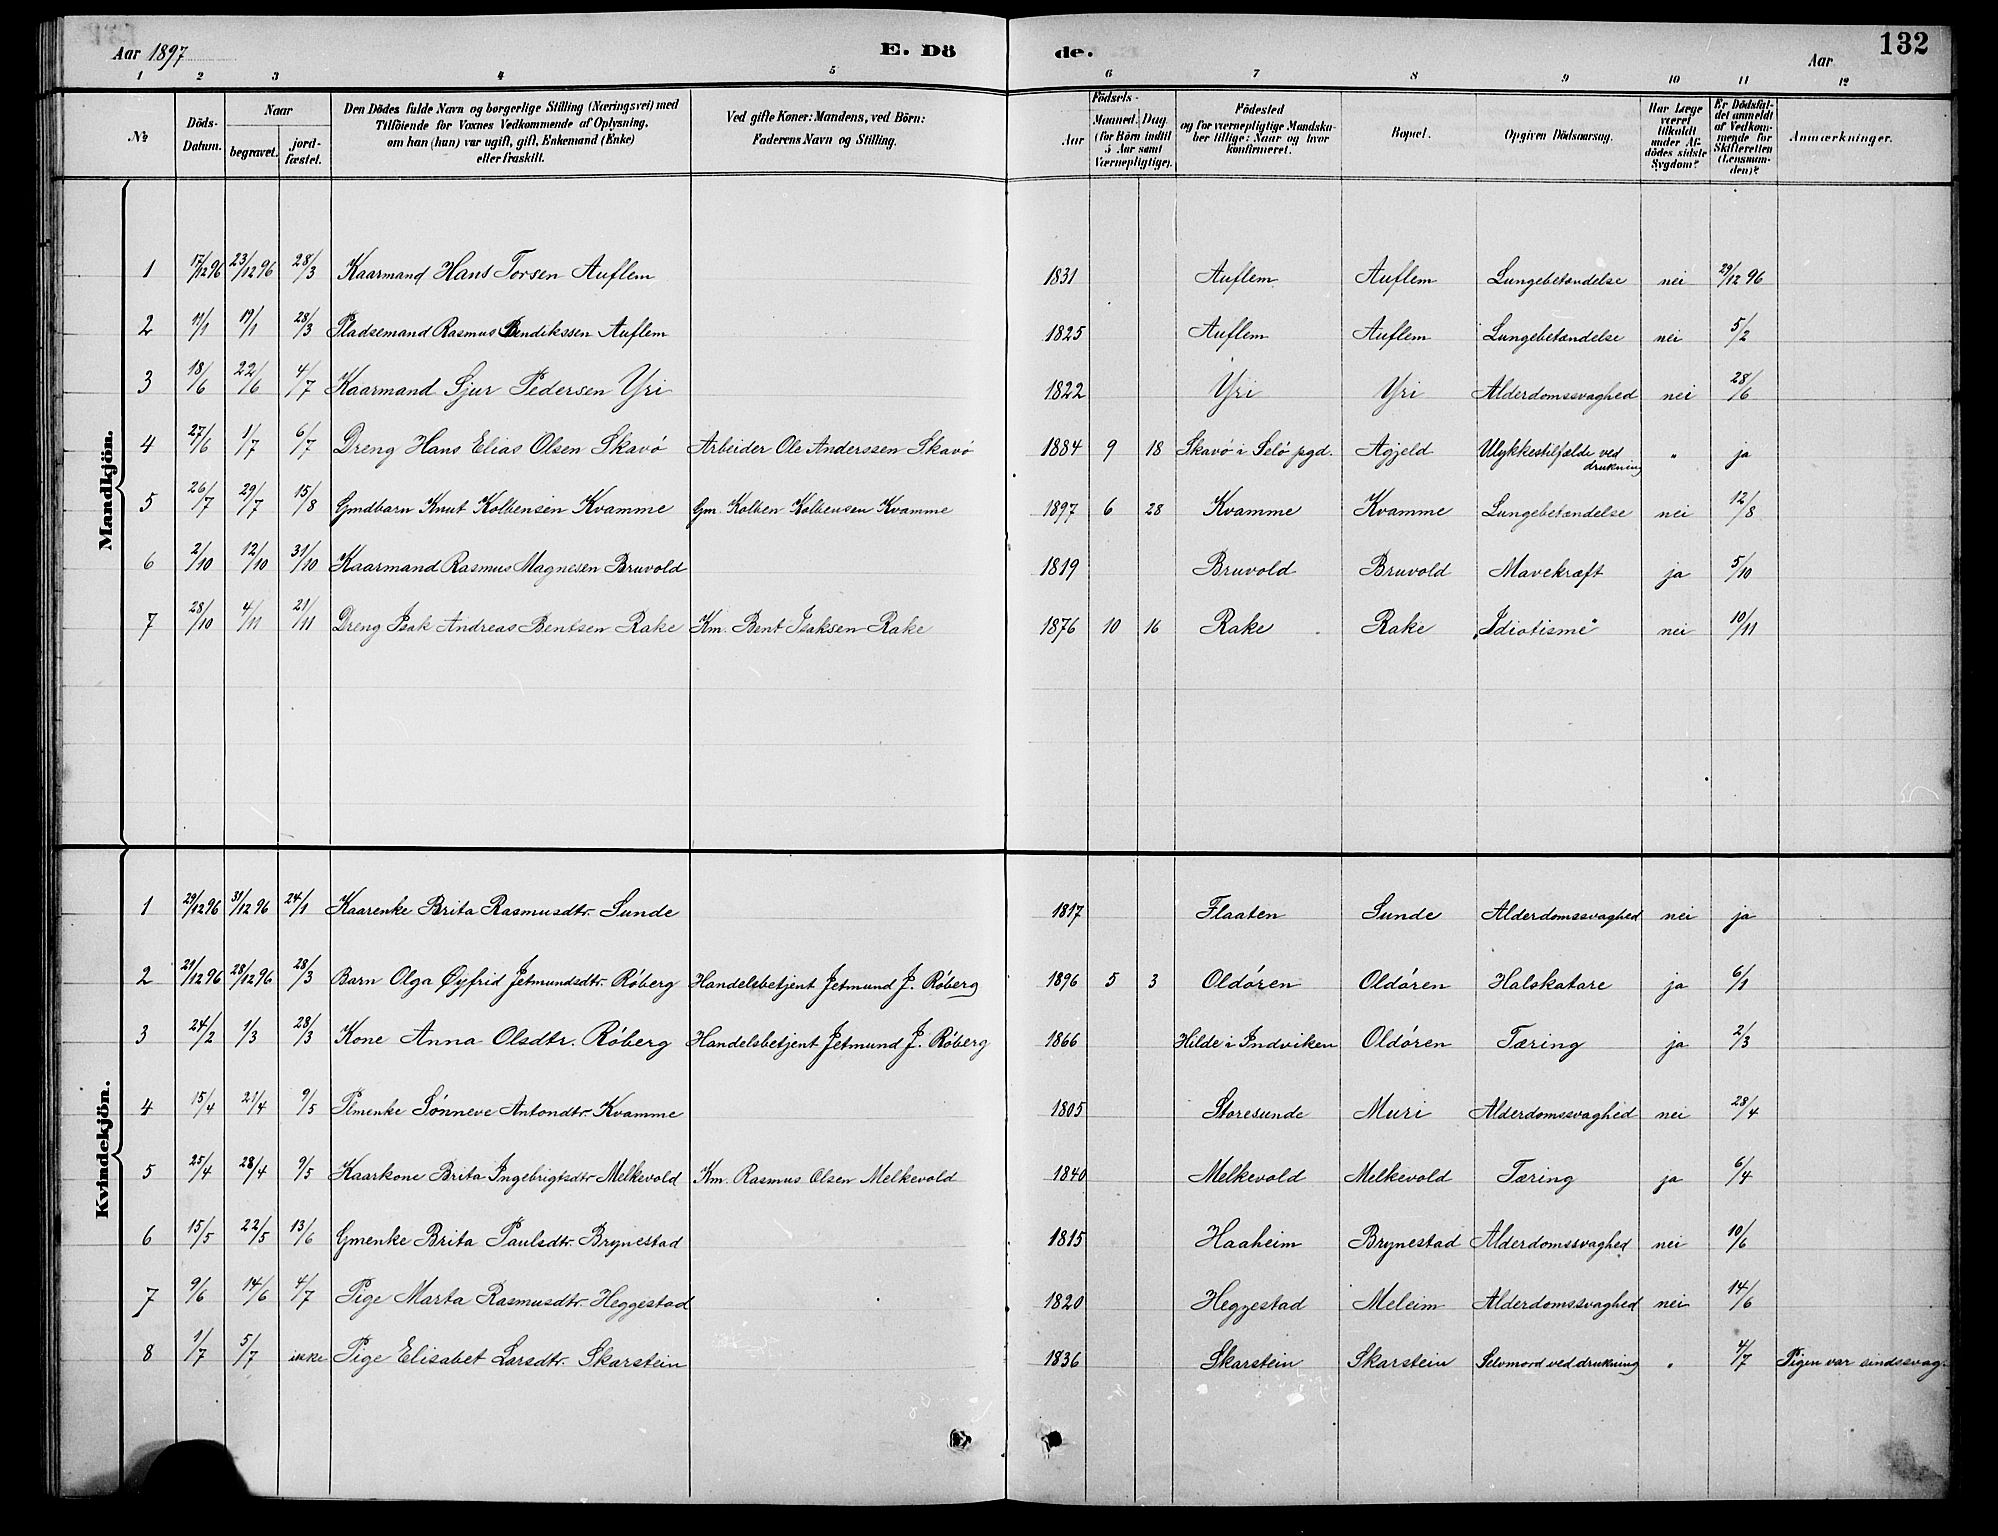 Aar 1897 E. Dö de. Aar 132
1 2 3 4 5 6 7 8 9 10 11 12
№ Döds-Datum. Naar begravet. jord-fæstet. Den Dödes fulde Navn og borgerlige Stilling (Næringsvei) med Tilföiende for Voxnes Vedkommende af Oplysning, om han (hun) var ugift, gift, Enkemand (Enke) eller fraskilt. Ved gifte Koner: Mandens, ved Börn: Faderens Navn og Stilling. Födsels- Aar Maaned. Dag (for Börn indtil 5 Aar samt Værnepligtige). Födested og for værnepligtige Mandska-ber tillige: Naar og hvor konfirmeret. Bopæl. Opgiven Dödsaarsag. Har Læge været tilkaldt under Af-dödes sidste Sygdom? Er Dödsfal-det anmeldt af Vedkom-mende for Skifteretten (Lensman-den)? Anmærkninger.
Mandkjön.
1 17/12 96 23/12 96 28/3 Kaarmand Hans Torsen Auflem 1831 Auflem Auflem Lungebetændelse nei 29/12 96
2 11/1 19/1 28/3 Pladsemand Rasmus Bendikssen Auflem 1825 Auflem Auflem Lungebetændelse nei 5/2
3 18/6 22/6 4/7 Kaarmand Sjur Pedersen Yri 1822 Yri Yri Alderdomssvaghed nei 28/6
4 27/6 1/7 6/7 Dreng Hans Elias Olsen Skavø Arbeider Ole Anderssen Skavø 1884 9 18 Skavø i Selø pgd. Agjeld Ulykkestilfælde ved drukning " ja
5 26/7 29/7 15/8 Gmdbarn Knut Kolbensen Kvamme Gm. Kolben Kolbensen Kvamme 1897 6 28 Kvamme Kvamme Lungebetændelse nei 12/8
6 2/10 12/10 31/10 Kaarmand Rasmus Magnesen Bruvold 1819 Bruvold Bruvold Mavekræft ja 5/10
7 28/10 4/11 21/11 Dreng Isak Andreas Bentsen Rake Km. Bent Isaksen Rake 1876 10 16 Rake Rake "Idiotisme" nei 10/11
Kvindekjön.
1 29/12 96 31/12 96 24/1 Kaarenke Brita Rasmusdtr. Sunde 1817 Flaaten Sunde Alderdomssvaghed nei ja
2 21/12 96 28/12 96 28/3 Barn Olga Øyfrid Jetmundsdtr. Røberg Handelsbetjent Jetmund J. Røberg 1896 5 3 Oldøren Oldøren Halskatare ja 6/1
3 24/2 1/3 28/3 Kone Anna Olsdtr. Røberg Handelsbetjent Jetmund J. Røberg 1866 Hilde i Indviken Oldøren Tæring ja 2/3
4 15/4 21/4 9/5 Plmenke Sønneve Antondtr. Kvamme 1805 Storesunde Muri Alderdomssvaghed nei 28/4
5 25/4 28/4 9/5 Kaarkone Brita Ingebrigtsdtr Melkevold Km. Rasmus Olsen Melkevold 1840 Melkevold Melkevold Tæring ja 6/4
6 15/5 22/5 13/6 Gmenke Brita Paulsdtr. Brynestad 1815 Haaheim Brynestad Alderdomssvaghed nei 10/6
7 9/6 14/6 4/7 Pige Marta Rasmusdtr. Heggestad 1820 Heggestad Meleim Alderdomssvaghed nei 14/6
8 1/7 5/7 ikke Pige Elisabet Larsdtr. Skarstein 1836 Skarstein Skarstein Selvmord ved drukning " 4/7 Pigen var sindssvag.